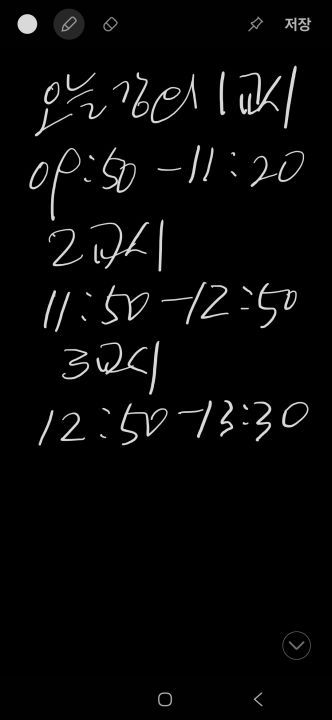 저장
오늘 강의 1교시
09:50-11:20
2교시
11:50-12:50
3교시
12:50-13:30